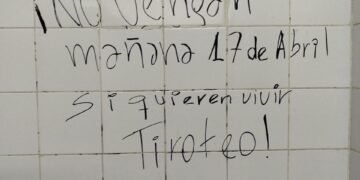 ¡NO vengan
mañana 17 de Abril
si quieren vivir
Tiroteo!